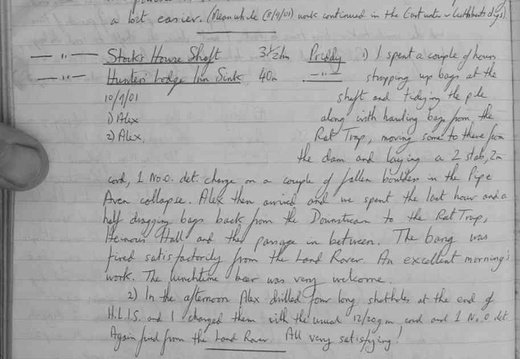 a bit easier. (Meanwhile (8/9/01) work continued in the Entrance & Cuthbert's dig)
— " — Stock's House Shaft 3½hrs Priddy 1) I spent a couple of hours
— " — Hunters Lodge Inn Sink 40m — " — stropping up bags at the
10/9/01 shaft and tidying the pile
1) Alex along with hauling bags from the
2) Alex, Rat Trap, moving some to there from
the dam and laying a 2 stab, 2m
cord, 1 No. 0. det. charge on a couple of fallen boulders in the Pipe
Aven collapse. Alex then arrived and we spent the last hour and a
half dragging bags back from the Downstream to the Rat Trap,
Heinous Hall and the passage in between. The bang was
fired satisfactorily from the Land Rover. An excellent morning's
work. The lunchtime beer was very welcome.
2) In the afternoon Alex drilled four long shotholes at the end of
H.L.I.S. and I charged them with the usual 12/20gm cord and 1 No. 0 det.
Again fired from the Land Rover. All very satisfying!